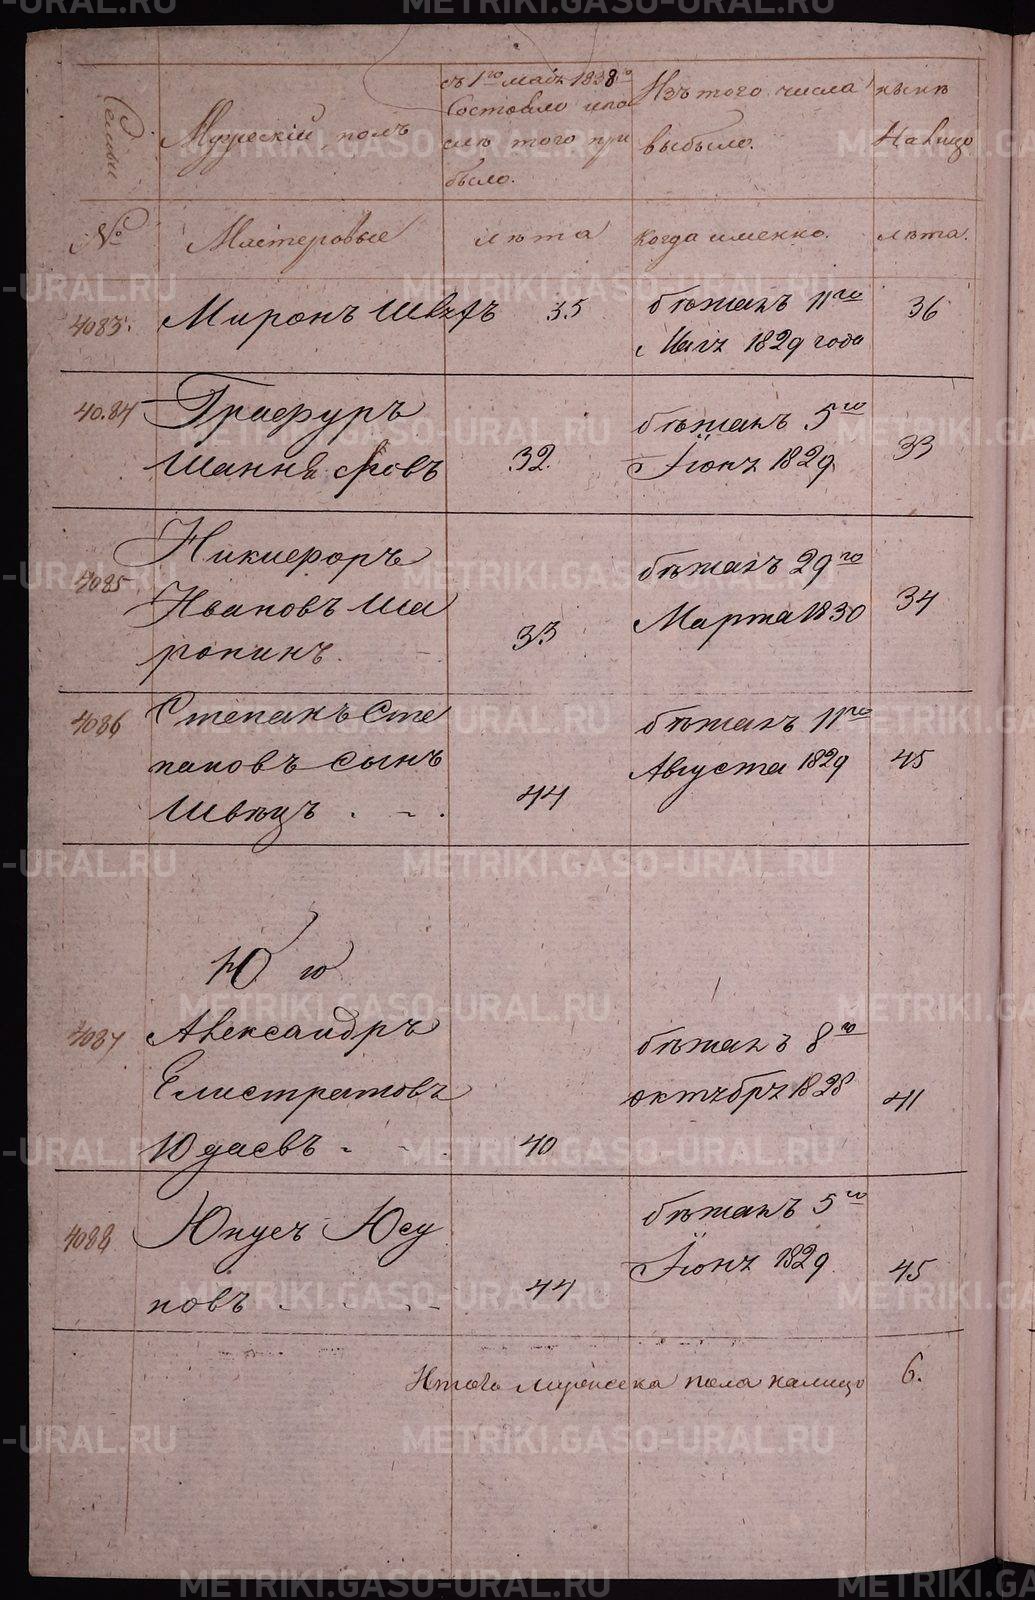 Семьи
Мужескій полъ
съ 1го маія 1828го
Состояло и по
слѣ того при
было.
Изъ того числа
выбыло.
нынѣ
На лицо
№
Мастеровые
лѣта
Когда именно.
лѣта.
4083.
Миронъ Швецъ
35
бѣжанъ 11го
Маія 1829 года
36
4084
Графуръ
Шаннеяровъ
32
бѣжанъ 5го
Іюня 1829
33
4085
Никифоръ
Ивановъ Ша
ропинъ
33
бѣжанъ 29го
Марта 1830
34
4086
Степанъ Сте
пановъ сынъ
Швѣцъ
44
бѣжанъ 11го
Августа 1829
45
Ю ю
4087
Александръ
Елистратовъ
Юдаевъ
40
бѣжанъ 8го
октября 1828
41
4088
Юнусъ Юсу
повъ
44
бѣжанъ 5го
Іюня 1829
45
Итого мужеска пола налицо
6.
METRIKI.GASO-URAL.RU